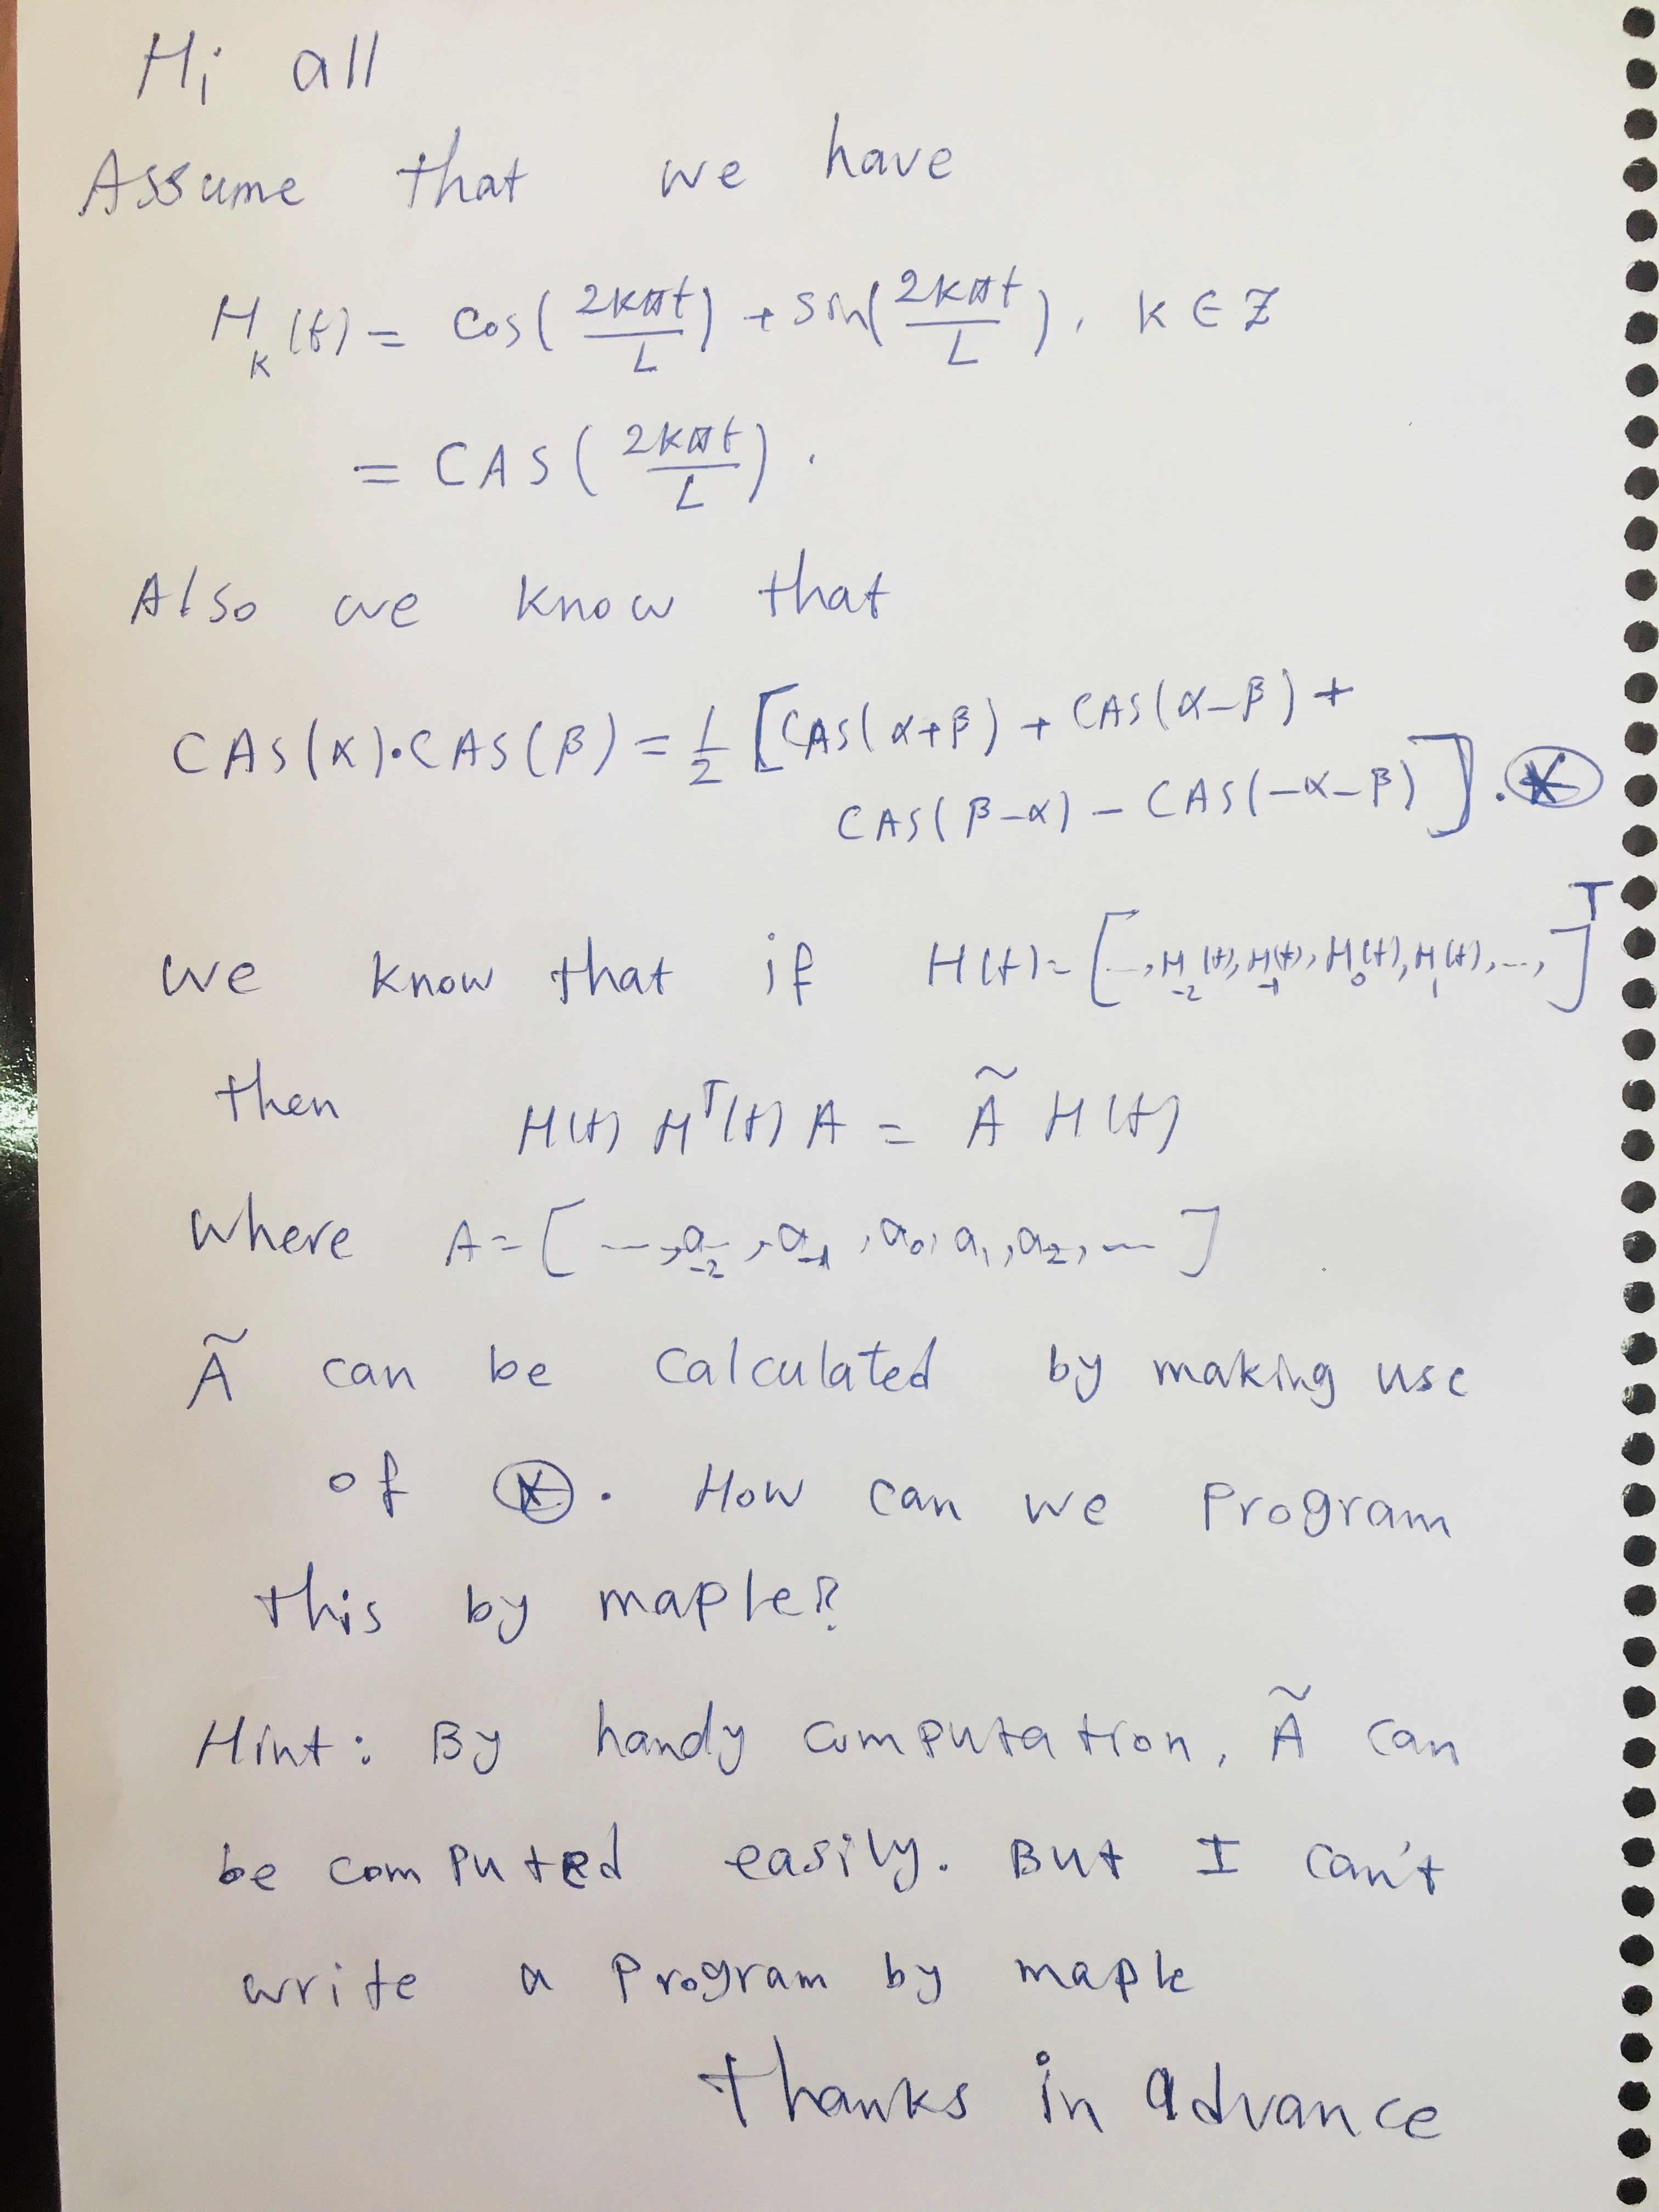 Hi all
Assume that we have
H_k(t) = Cos(2kπt/L) + Sin(2kπt/L), k ∈ Z
= CAS(2kπt/L).
Also we know that
CAS(α)·CAS(β) = 1/2 [CAS(α+β) + CAS(α-β) +
CAS(β-α) - CAS(-α-β)]. ⊛
we know that if H(t) = [..., H_-2(t), H_-1(t), H_0(t), H_1(t), ...,]^T
then H(t) H^T(t) A = Ã H(t)
where A = [---, a_-2, a_-1, a_0, a_1, a_2, ---]
Ã can be calculated by making use
of ⊛. How can we program
this by maple?
Hint: By handy computation, Ã can
be computed easily. But I can't
write a program by maple
thanks in advance